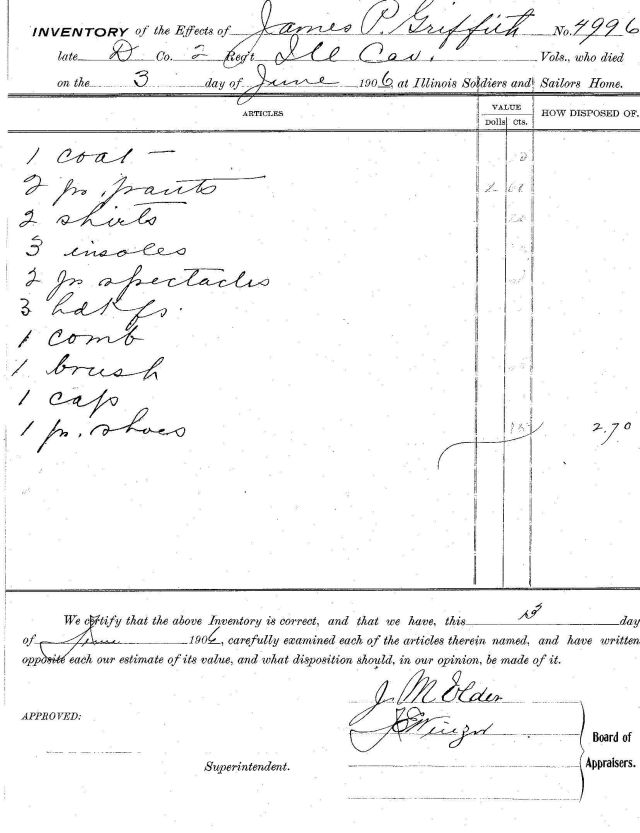 INVENTORY of the Effects of James P. Griffith No. 4996
late D Co. 2 Reg't Ill Cav. Vols., who died
on the 3 day of June 1906, at Illinois Soldiers and Sailors Home.
ARTICLES VALUE HOW DISPOSED OF.
Dolls cts.
1 coat —
2 pr. pants
2 shirts
3 insoles
2 pr spectacles
3 hdkfs.
1 comb
1 brush
1 cap
1 pr. shoes 2.70
We certify that the above Inventory is correct, and that we have, this day
of June 1906, carefully examined each of the articles therein named, and have written
opposite each our estimate of its value, and what disposition should, in our opinion, be made of it.
J. M Older
APPROVED:
Board of
Appraisers.
Superintendent.